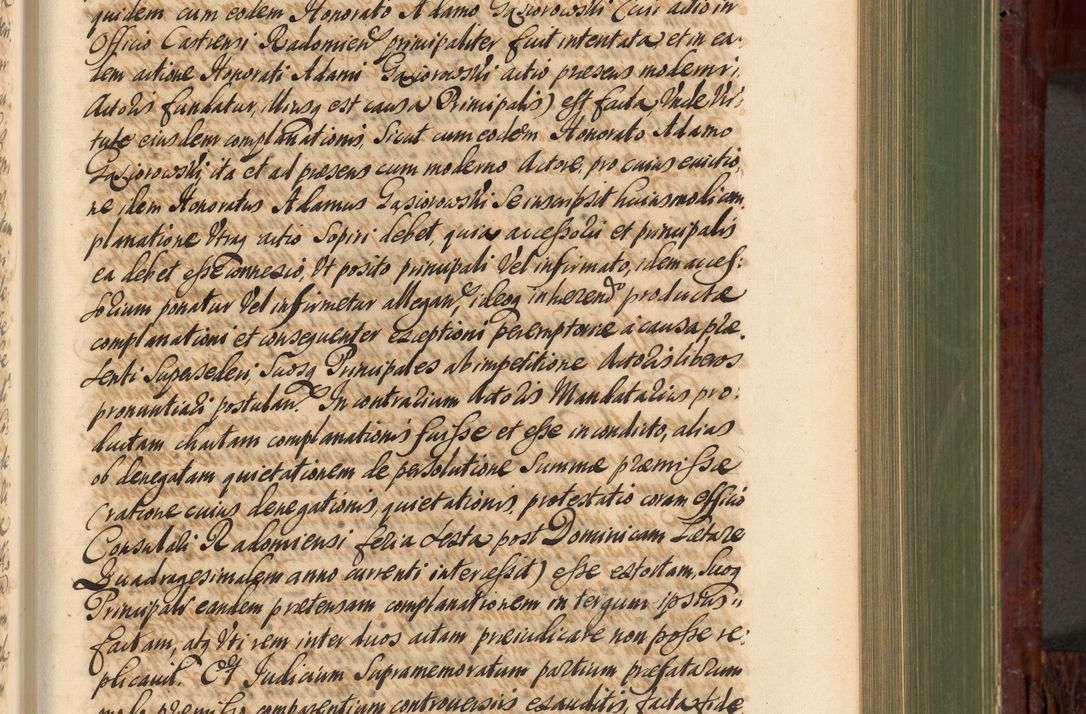 quidem cum eodem Honorato Adamo Gąsiorowski (cui actio in
Officio Castrensi Radomien principaliter fuit intentata et in ea-
dem actione Honorati Adami Gąsiorowski actio præsens moderni
Actoris fundatur, illiusq est causa Principalis) est facta, Unde Vir-
tute eiusdem complanationis, Sicut cum eodem Honorato Adamo
Gąsiorowski ita et ad præsens cum moderno Actore, pro cuius evictio-
ne idem Honoratus Adamus Gąsiorowski Se inscripsit huiusmodi com-
planatione Utraq actio Sopiri debet, quia accessorii et principalis
ea debet esse connexio, Ut posito principali Vel infirmato, idem acces-
sorium ponatur Vel infirmetur allegan, ideoq inherendo productæ
complanationi et consequenter exceptioni peremptoriæ à causa præ-
senti Supersederi, Suosq Principales ab impetitione Actoris liberos
pronuntiari postulavit. In contrarium Actoris Mandatarius pro-
ductam chartam complanationis fuisse et esse in condicto, alias
ob denegatam quietationem de persolutione Summæ præmissæ
(ratione cuius denegationis, quietationis, protestatio coram officio
Consulari Radomiensi feria sexta post Dominicam Lætare
Quadragesimalem anno currenti intercessit) esse extortam, Suoq
Principali eandem prætensam complanationem in tergum ipsius
factam, atq Uti rem inter duos actam præiudicare non posse re-
plicavit. Et Iudicium Supramemoratum partium præfatarum
modo præmisso comparentium controversiis exauditis, facta fide